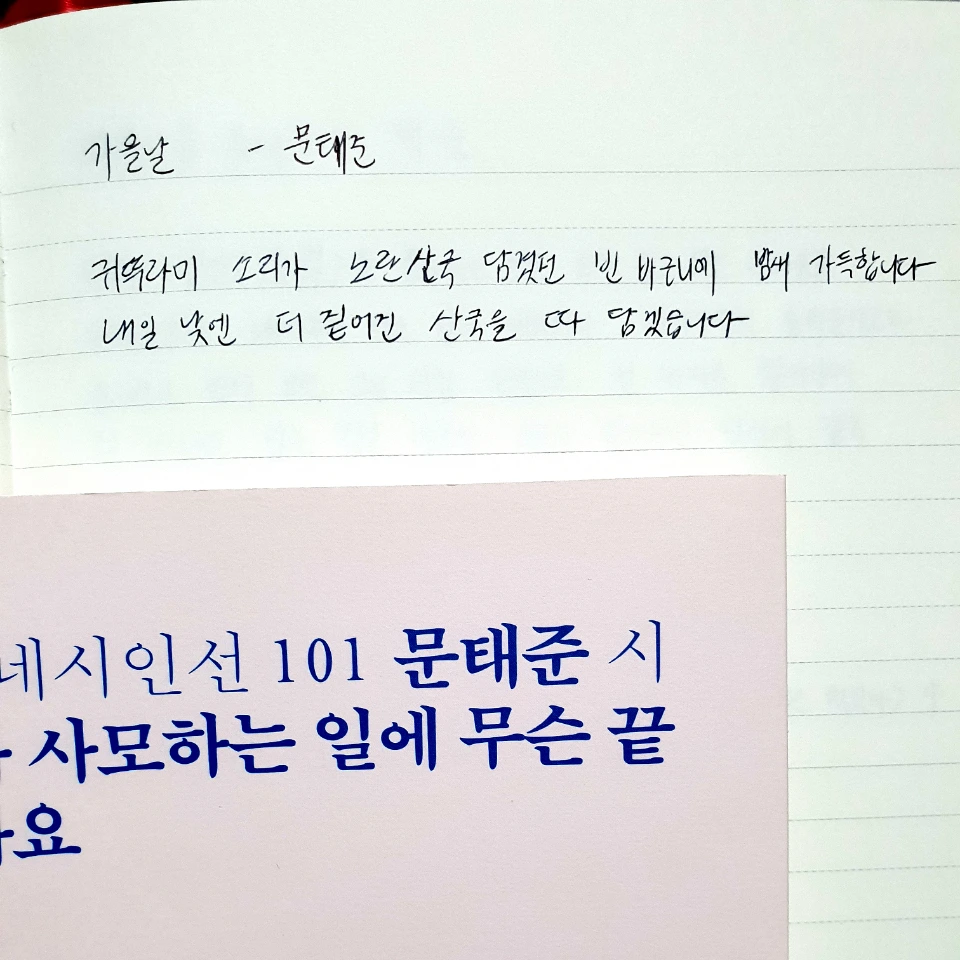 가을날 - 문태준
귀뚜라미 소리가 노란 산국 담겼던 빈 바구니에 밤새 가득합니다
내일 낮엔 더 짙어진 산국을 따 담겠습니다
네시인선 101 문태준 시
사모하는 일에 무슨 끝
요